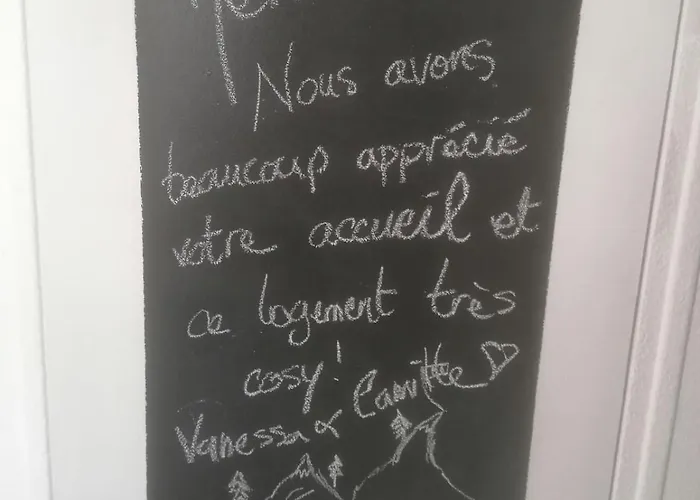 Nous avons
beaucoup apprécié
votre accueil et
ce logement très
cosy!
Vanessa & Camille